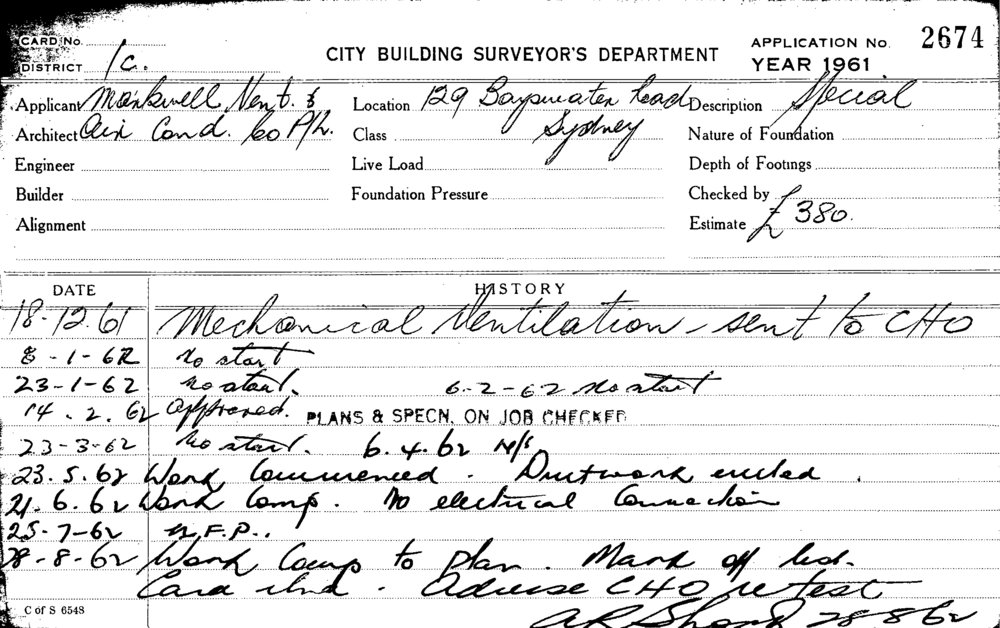 CARD No. CITY BUILDING SURVEYOR'S DEPARTMENT APPLICATION No. 2674
DISTRICT 1c. YEAR 1961
Applicant Mankwell Vent. & Location 129 Bayswater Road Description Special
Architect Air Cond. Co P/L. Class Sydney Nature of Foundation
Engineer Live Load Depth of Footings
Builder Foundation Pressure Checked by
Alignment Estimate £380.
DATE HISTORY
18.12.61 Mechanical Ventilation - sent to CHO
8-1-62 No start
23-1-62 No start. 6-2-62 No start
14.2.62 Approved. PLANS & SPECN. ON JOB CHECKED
23-3-62 No start. 6.4.62 N/S
23.5.62 Work Commenced. Ductwork erected.
21.6.62 Work Comp. No electrical Connection
25-7-62 N.F.P..
28-8-62 Work Comp to plan. Mark off list.
Card . Advise CHO re test
28862
C of S 6548